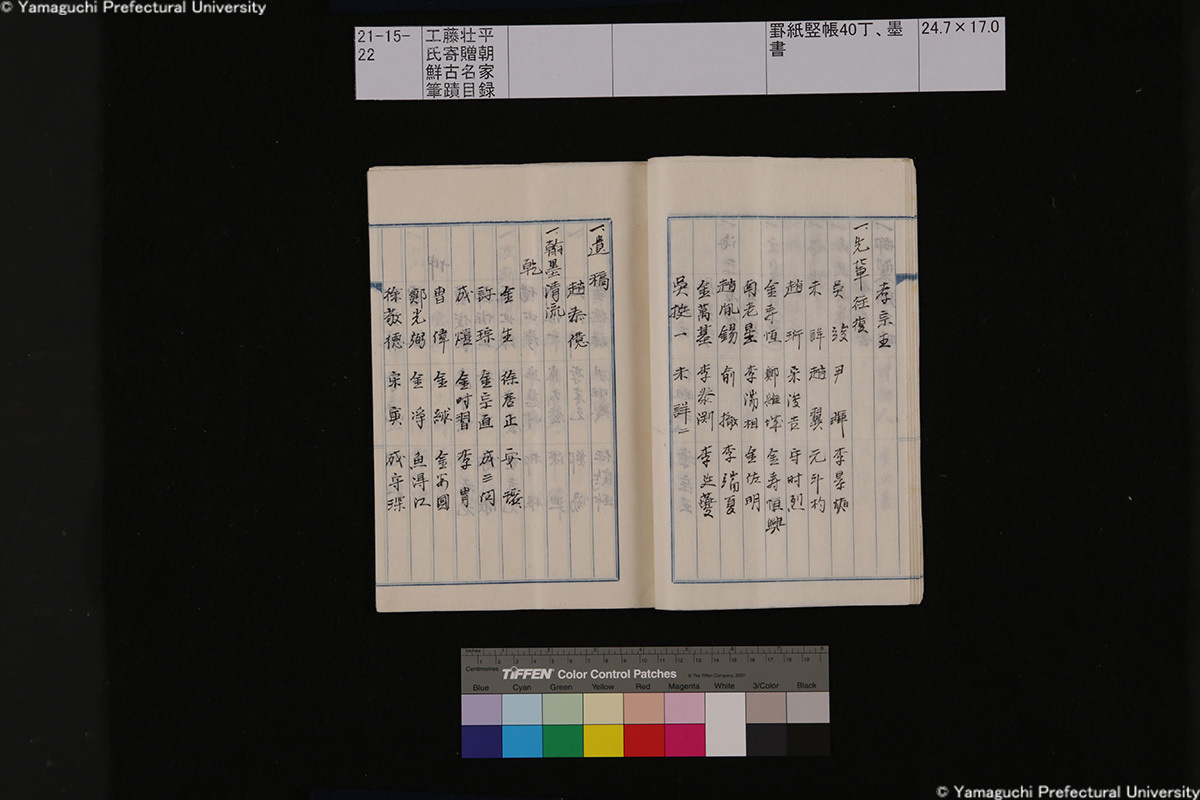 © Yamaguchi Prefectural University
21-15-22
工藤壮平
氏寄贈朝
鮮古名家
筆蹟目録
罫紙竪帳40丁、墨書
24.7×17.0
孝宗王
一、先輩往復
吳竣 尹 李景奭
未詳 趙翼 元斗杓
趙珩 宋浚吉 宋时烈
金寿恒 鄭維 金寿恒興
南老星 李 相 金佐明
趙胤錫 俞㯙 李端夏
金萬基 李 李
吳挺一 未詳二
一、遺稿
趙泰億
一、翰墨清流
乾
金生 徐居正 安
許琮 金宗直 成三问
成熺 金时習 李胄
曹偉 金絿 金安國
鄭光弼 金淨 魚得江
徐敬德 宋寅 成守琛
Centimetres
TIFFEN Color Control Patches
© The Tiffen Company, 2007
Blue Cyan Green Yellow Red Magenta White 3/Color Black
© Yamaguchi Prefectural University